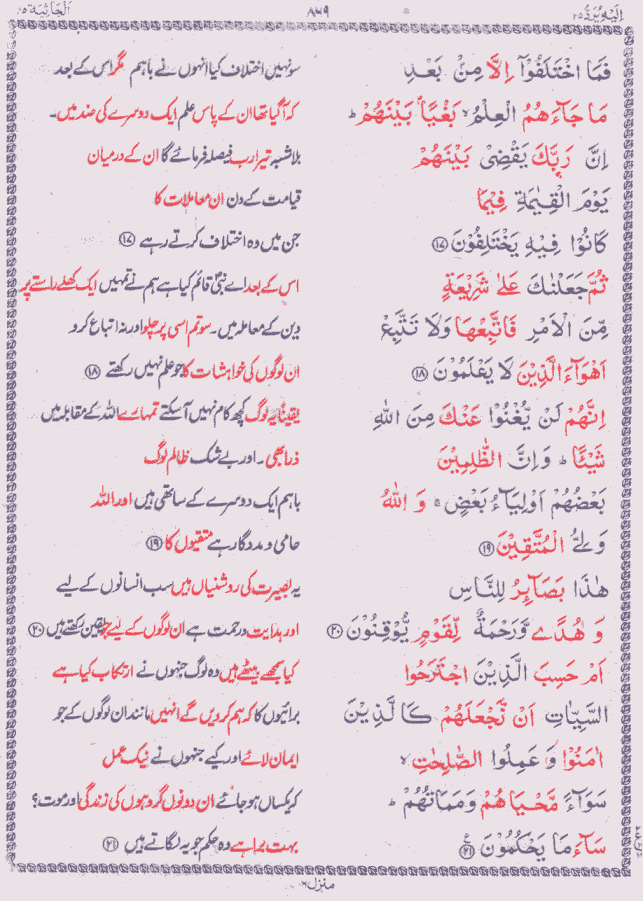 اِلَیْهِ یُرَدُّ ۲۵ ۸۲۹ اَلْجَاثِیَة ۴۵
فَمَا اخْتَلَفُوْۤا اِلَّا مِنْۢ بَعْدِ سو نہیں اختلاف کیا انہوں نے باہم مگر اس کے بعد
مَا جَآءَهُمُ الْعِلْمُ ۙ بَغْیًۢا بَیْنَهُمْ ؕ کہ آگیا تھا ان کے پاس علم ایک دوسرے کی ضد میں۔
اِنَّ رَبَّكَ یَقْضِیْ بَیْنَهُمْ بلاشبہ تیرا رب فیصلہ فرمائے گا ان کے درمیان
یَوْمَ الْقِیٰمَةِ فِیْمَا قیامت کے دن ان معاملات کا
كَانُوْا فِیْهِ یَخْتَلِفُوْنَ ⑰ جن میں وہ اختلاف کرتے رہے ⑰
ثُمَّ جَعَلْنٰكَ عَلٰی شَرِیْعَةٍ اس کے بعد اے نبیؐ قائم کیا ہے ہم نے تمہیں ایک کھلے راستے پر
مِّنَ الْاَمْرِ فَاتَّبِعْهَا وَلَا تَتَّبِعْ دین کے معاملہ میں۔ سو تم اسی پر چلو اور نہ اتباع کرو
اَهْوَآءَ الَّذِیْنَ لَا یَعْلَمُوْنَ ⑱ ان لوگوں کی خواہشات کا جو علم نہیں رکھتے ⑱
اِنَّهُمْ لَنْ یُّغْنُوْا عَنْكَ مِنَ اللّٰهِ یقیناً یہ لوگ کچھ کام نہیں آسکتے تمہارے اللہ کے مقابلہ میں
شَیْـًٔا ؕ وَ اِنَّ الظّٰلِمِیْنَ ذرا بھی۔ اور بے شک ظالم لوگ
بَعْضُهُمْ اَوْلِیَآءُ بَعْضٍ ۚ وَ اللّٰهُ باہم ایک دوسرے کے ساتھی ہیں اور اللہ
وَلِیُّ الْمُتَّقِیْنَ ⑲ حامی و مددگار ہے متقیوں کا ⑲
هٰذَا بَصَآىِٕرُ لِلنَّاسِ یہ بصیرت کی روشنیاں ہیں سب انسانوں کے لیے
وَ هُدًی وَّ رَحْمَةٌ لِّقَوْمٍ یُّوْقِنُوْنَ ⑳ اور ہدایت و رحمت ہے ان لوگوں کے لیے جو یقین رکھتے ہیں ⑳
اَمْ حَسِبَ الَّذِیْنَ اجْتَرَحُوا کیا سمجھے بیٹھے ہیں وہ لوگ جنہوں نے ارتکاب کیا ہے
السَّیِّاٰتِ اَنْ نَّجْعَلَهُمْ كَالَّذِیْنَ برائیوں کا کہ ہم کردیں گے انہیں مانند ان لوگوں کے جو
اٰمَنُوْا وَ عَمِلُوا الصّٰلِحٰتِ ۙ ایمان لائے اور کیے جنہوں نے نیک عمل
سَوَآءً مَّحْیَاهُمْ وَ مَمَاتُهُمْ ؕ کہ یکساں ہوجائے ان دونوں گروہوں کی زندگی اور موت؟
سَآءَ مَا یَحْكُمُوْنَ ㉑ بہت برا ہے وہ حکم جو یہ لگاتے ہیں ㉑
منزل ۶